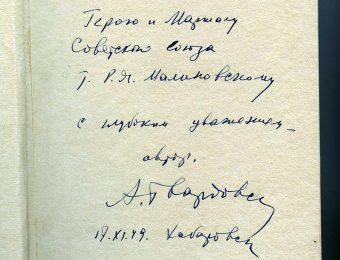 Герою и Маршалу
Советского Союза
т. Р.Я. Малиновскому
с глубоким уважением –
автор.
А. Твардовск
19.XI.49. Хабаровск